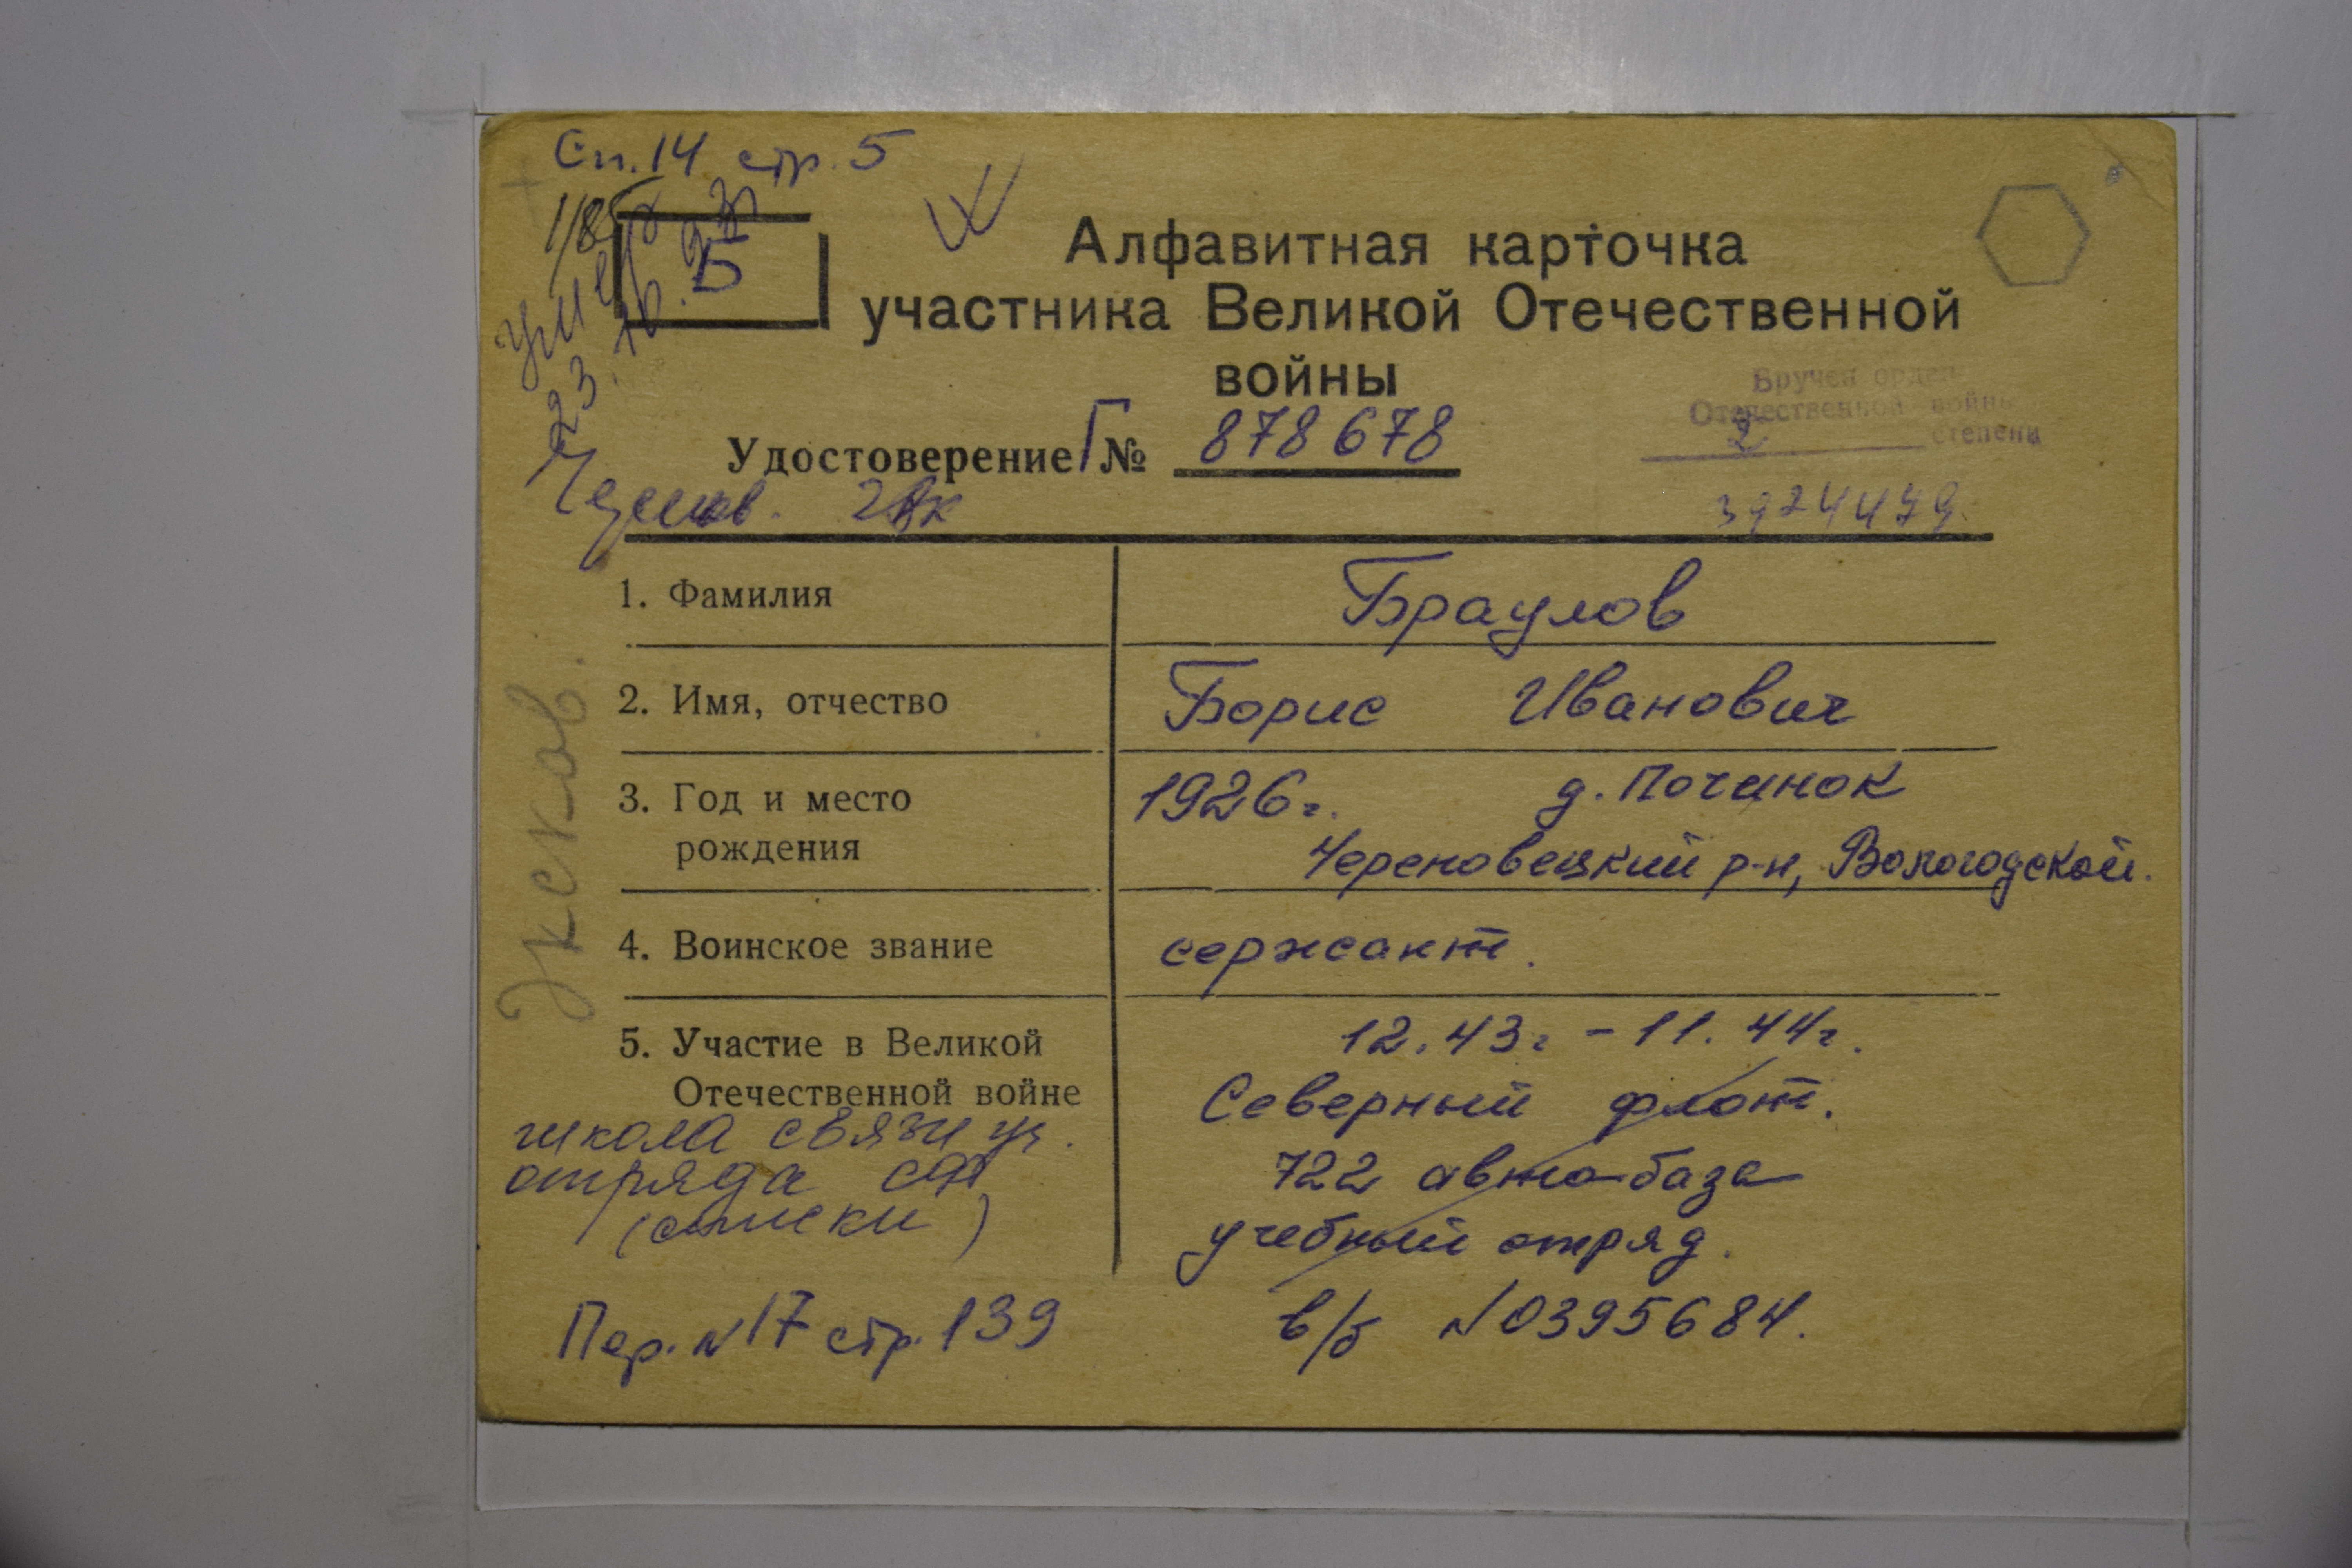 Сп. 14 стр. 5
1/85
Умер
23.10.93г
Б
Алфавитная карточка
участника Великой Отечественной
войны
Вручен орден
Отечественной войны
2 степени
Удостоверение Г № 878678
2вк
3924479
1. Фамилия
Браулов
2. Имя, отчество
Борис Иванович
3. Год и место
рождения
1926г. д. Починок
Череповецкий р-н, Вологодской.
4. Воинское звание
сержант.
Эксков.
5. Участие в Великой
Отечественной войне
12.43г - 11.44г.
Северный флот.
722 авто-база
учебный отряд.
школа связи уч.
отряда СФ
(списки)
Пер. N17 стр. 139
в/б N0395684.